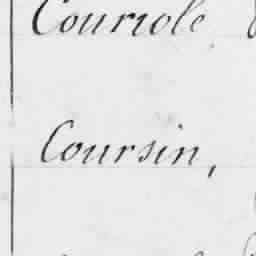 Couriole
Coursin,